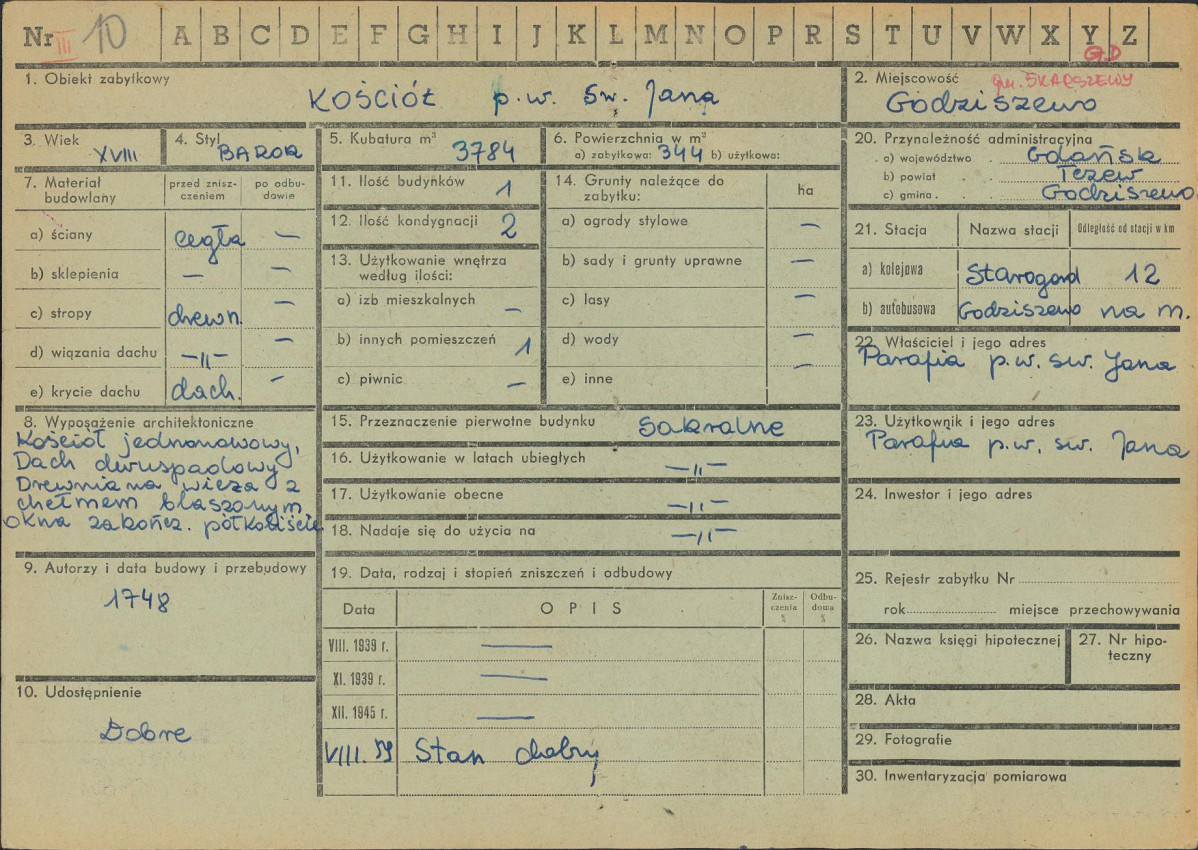 Nr III 10 A B C D E F G H I J K L M N O P R S T U V W X Y Z
G.D
1. Obiekt zabytkowy
KOŚCIÓŁ p.w. Św. Jana
2. Miejscowość gm. SKARSZEWY
Godziszewo
3. Wiek
XVIII
4. Styl
BAROK
5. Kubatura m³
3784
6. Powierzchnia w m²
a) zabytkowa: 344 b) użytkowa:
7. Materiał budowlany
przed zniszczeniem
po odbudowie
a) ściany cegła —
b) sklepienia — —
c) stropy drewn. —
d) wiązania dachu —„— —
e) krycie dachu dach. —
8. Wyposażenie architektoniczne
Kościół jednonawowy,
Dach dwuspadowy
Drewniana wieża z
chełmem blaszonym
okna zakończ. półkoliście
9. Autorzy i data budowy i przebudowy
1748
10. Udostępnienie
Dobre
11. Ilość budynków 1
12. Ilość kondygnacji 2
13. Użytkowanie wnętrza
według ilości:
a) izb mieszkalnych —
b) innych pomieszczeń 1
c) piwnic —
14. Grunty należące do
zabytku:
ha
a) ogrody stylowe —
b) sady i grunty uprawne —
c) lasy —
d) wody —
e) inne —
15. Przeznaczenie pierwotne budynku Sakralne
16. Użytkowanie w latach ubiegłych —„—
17. Użytkowanie obecne —„—
18. Nadaje się do użycia na —„—
19. Data, rodzaj i stopień zniszczeń i odbudowy
Data OPIS Zniszczenia % Odbudowa %
VIII. 1939 r. —
XI. 1939 r. —
XII. 1945 r. —
VIII. 59 Stan dobry
20. Przynależność administracyjna
a) województwo Gdańsk
b) powiat Tczew
c) gmina Godziszewo
21. Stacja Nazwa stacji Odległość od stacji w km
a) kolejowa Starogard 12
b) autobusowa Godziszewo na m.
22. Właściciel i jego adres
Parafia p.w. św. Jana
23. Użytkownik i jego adres
Parafia p.w. św. Jana
24. Inwestor i jego adres
25. Rejestr zabytku Nr
rok miejsce przechowywania
26. Nazwa księgi hipotecznej
27. Nr hipoteczny
28. Akta
29. Fotografie
30. Inwentaryzacja pomiarowa